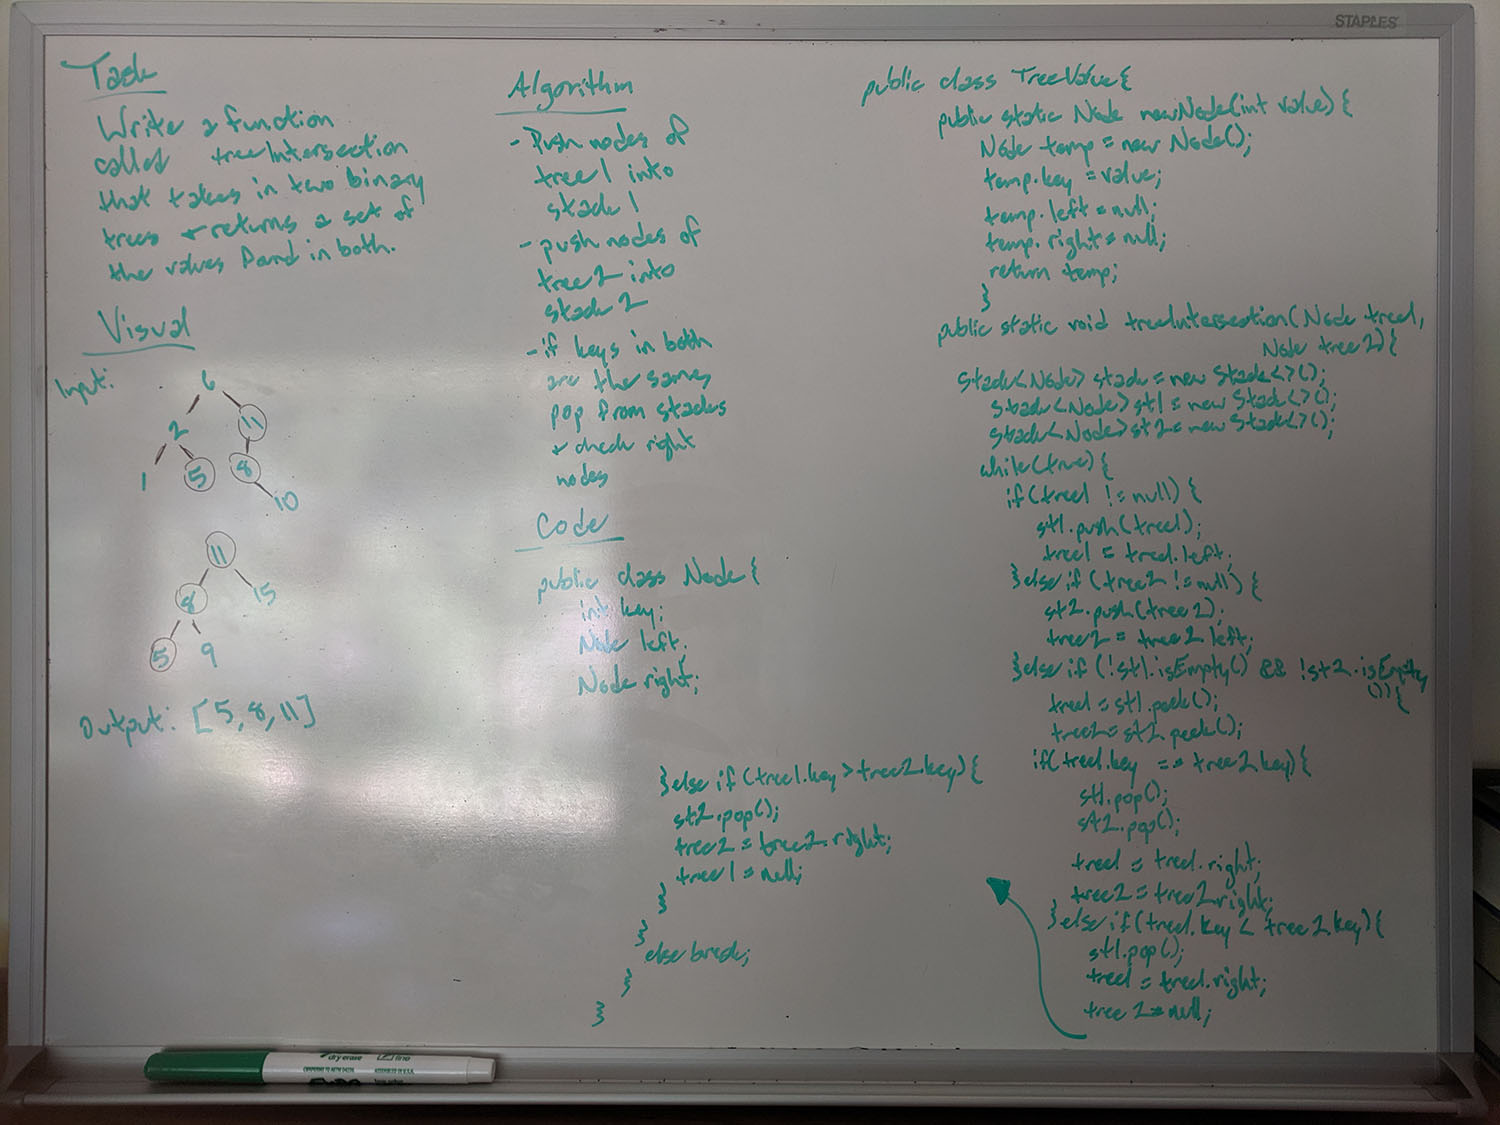 STAPLES
Task
Write a function
called treeIntersection
that takes in two binary
trees + returns a set of
the values found in both.
Visual
Input:
6
2 11
1 5 8
10
11
8 15
5 9
Output: [5, 8, 11]
Algorithm
- Push nodes of
tree1 into
stack 1
- push nodes of
tree2 into
stack 2
- if keys in both
are the same
pop from stacks
+ check right
nodes
Code
public class Node {
int key;
Node left;
Node right;
public class TreeValue{
public static Node newNode(int value){
Node temp = new Node();
temp.key = value;
temp.left = null;
temp.right = null;
return temp;
}
public static void treeIntersection(Node tree1,
Node tree2){
Stack<Node> stack = new Stack<>();
Stack<Node> st1 = new Stack<>();
Stack<Node> st2 = new Stack<>();
while(true){
if(tree1 != null) {
st1.push(tree1);
tree1 = tree1.left;
}else if (tree2 != null) {
st2.push(tree2);
tree2 = tree2.left;
}else if (!st1.isEmpty() && !st2.isEmpty
()){
tree1 = st1.peek();
tree2 = st2.peek();
if(tree1.key == tree2.key){
st1.pop();
st2.pop();
tree1 = tree1.right;
tree2 = tree2.right;
}else if(tree1.key < tree2.key){
st1.pop();
tree1 = tree1.right;
tree2 = null;
}else if (tree1.key > tree2.key){
st2.pop();
tree2 = tree2.right;
tree1 = null;
}
}
else break;
}
}
dry erase
fine